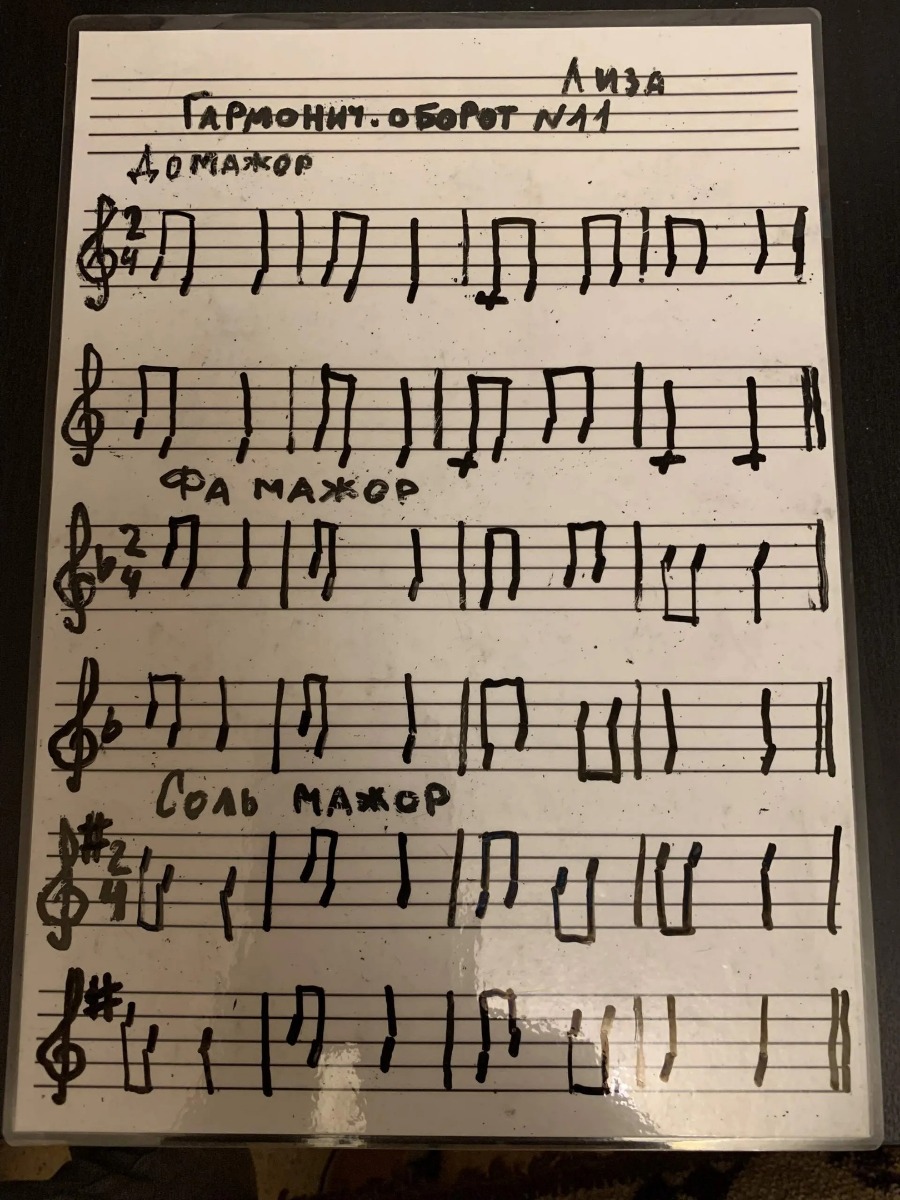 Лиза
Гармонич. оборот N11
До мажор
2
4
Фа мажор
2
4
Соль мажор
2
4